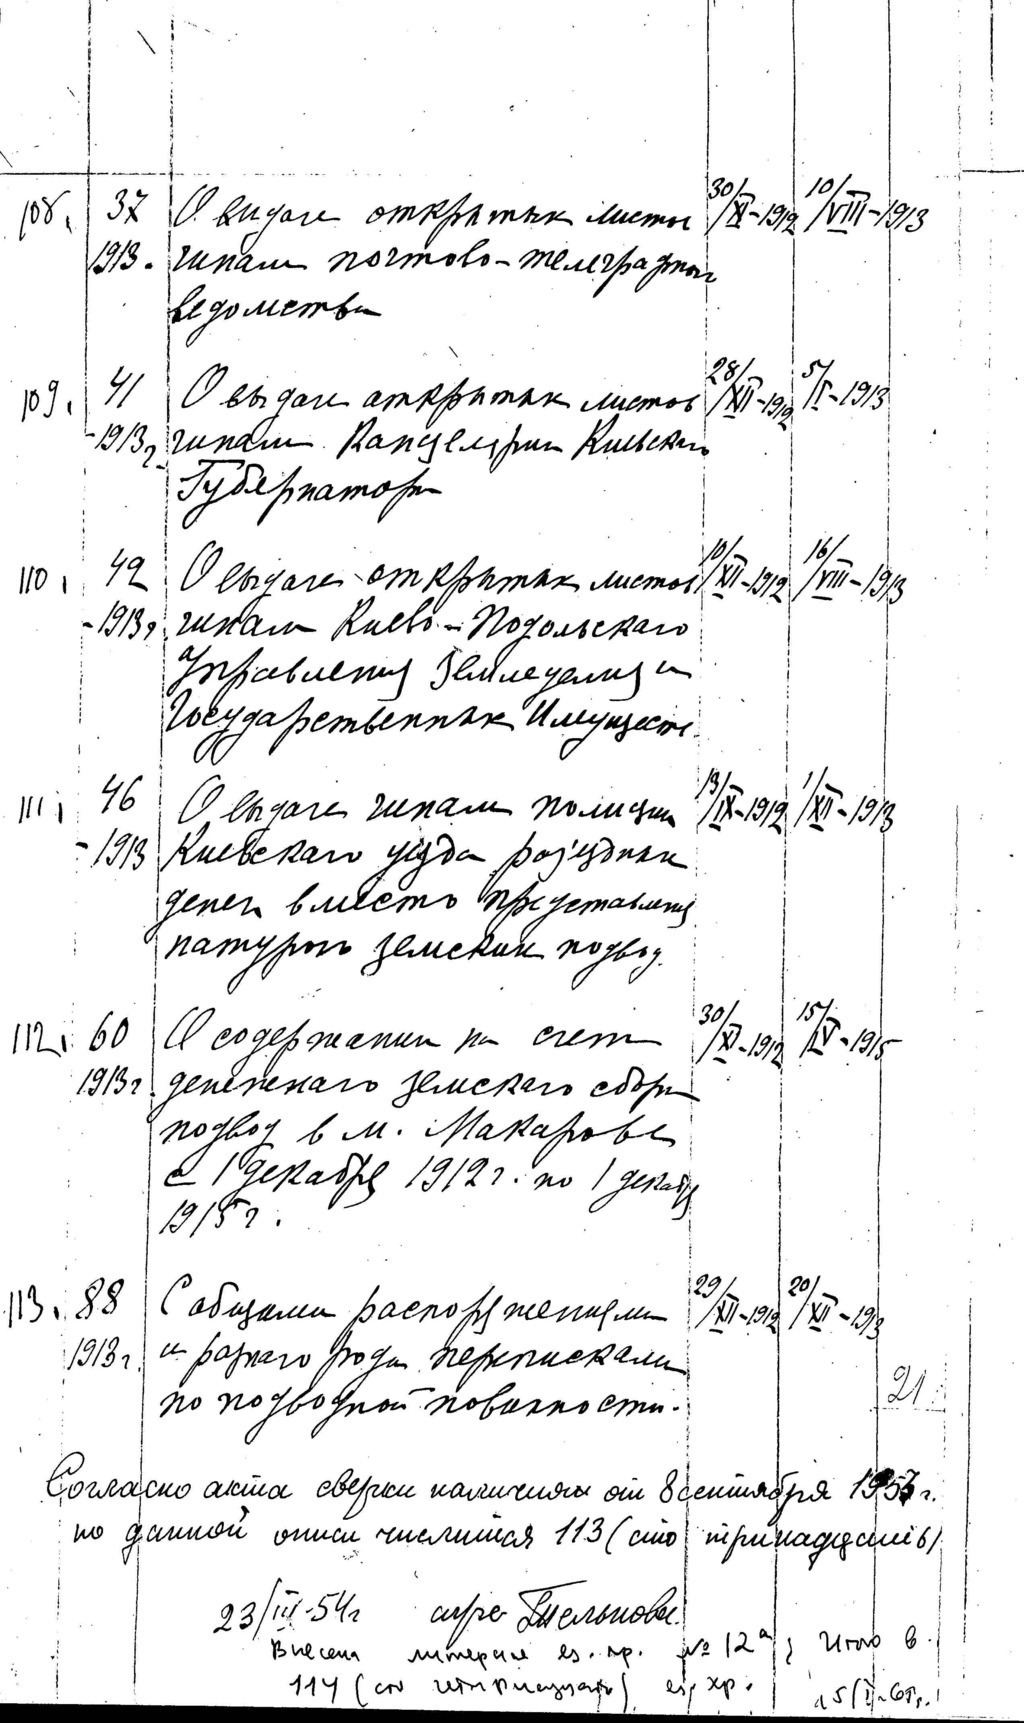 108. 37 О выдаче открытых листов 30/XI-1912 10/VIII-1913
1913. чинам почтово-телеграфного
ведомства
109. 41 О выдаче открытых листов 28/XII-1912 5/II-1913
-1913г. чинам Канцелярии Киевского
Губернатора
110. 42 О выдаче открытых листов 10/XII-1912 16/VIII-1913
-1913г. чинам Киево-Подольскаго
Управления Земледелия и
Государственных Имуществ.
111. 46 О выдаче чинам полиции 13/IX-1912 1/XII-1913
-1913 Киевскаго уезда разъездных
денег вместо представления
натурою земских подвод.
112. 60 О содержании на счет 30/XI-1912 15/IV-1915
1913г. денежнаго земскаго сбора
подвод в м. Макарове
с 1 декабря 1912г. по 1 декабря
1915г.
113. 88 С общими распоряжениями 29/XII-1912 20/XII-1913
1913г. и разнаго рода переписками
по подводной повинности.
21
Согласно акта сверки наличия от 8 сентября 1953г.
по данной описи числится 113 (сто тринадцать)
23/III-54г
Внесена литерная ед. хр. № 12а, Итого в.
114 (сто четырнадцать) ед. хр.